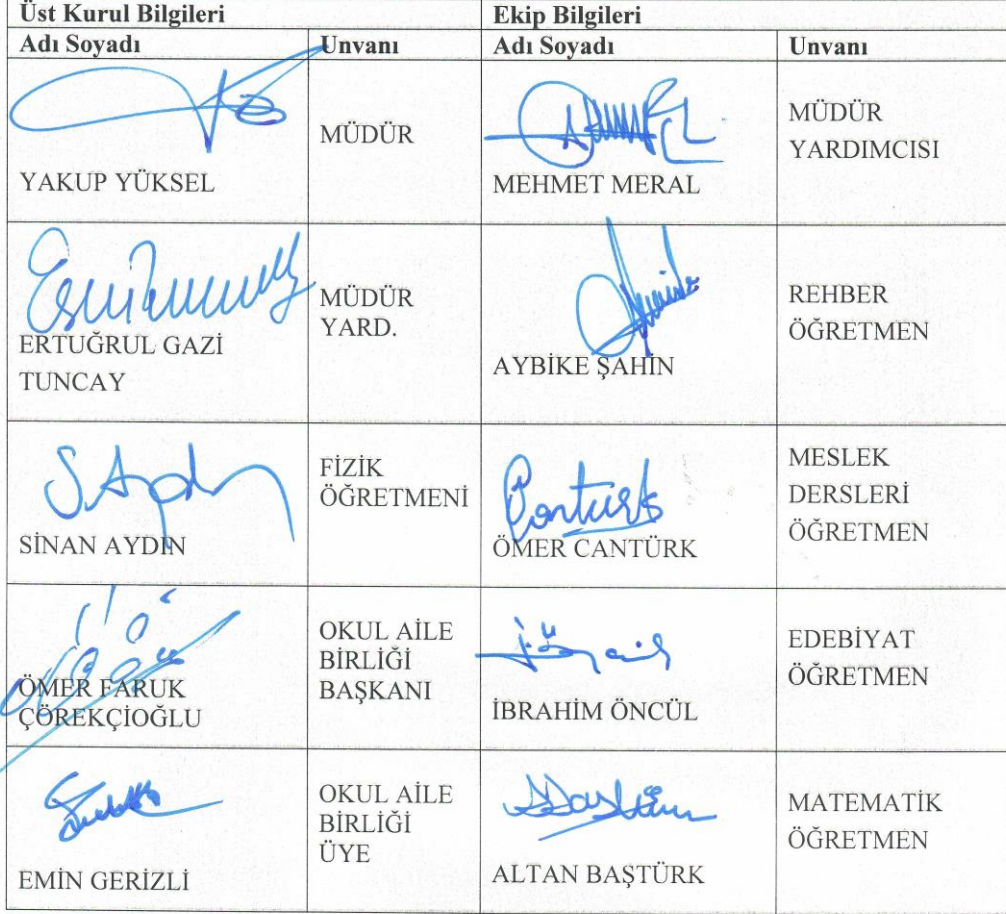 Üst Kurul Bilgileri
Ekip Bilgileri
Adı Soyadı
Unvanı
Adı Soyadı
Unvanı
YAKUP YÜKSEL
MÜDÜR
MEHMET MERAL
MÜDÜR
YARDIMCISI
ERTUĞRUL GAZİ
TUNCAY
MÜDÜR
YARD.
AYBİKE ŞAHİN
REHBER
ÖĞRETMEN
S. Aydın
SİNAN AYDIN
FİZİK
ÖĞRETMENİ
Cantürk
ÖMER CANTÜRK
MESLEK
DERSLERİ
ÖĞRETMEN
ÖMER FARUK
ÇÖREKÇİOĞLU
OKUL AİLE
BİRLİĞİ
BAŞKANI
İBRAHİM ÖNCÜL
EDEBİYAT
ÖĞRETMEN
EMİN GERİZLİ
OKUL AİLE
BİRLİĞİ
ÜYE
ALTAN BAŞTÜRK
MATEMATİK
ÖĞRETMEN